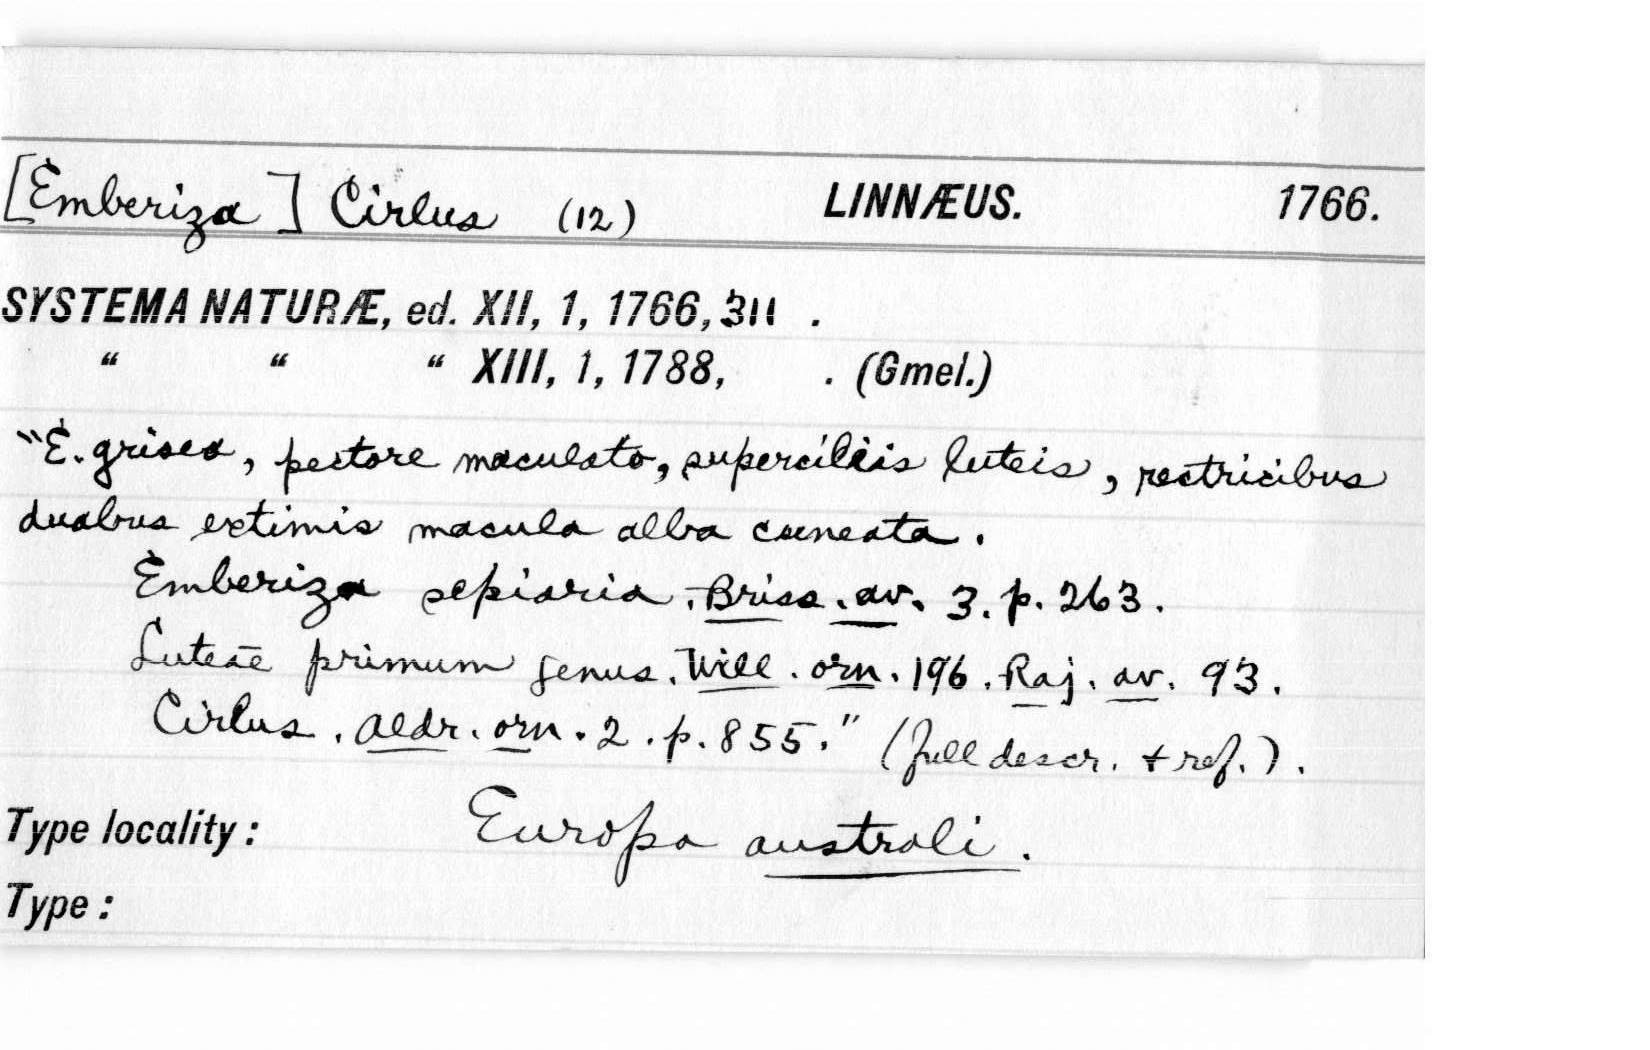 [Emberiza] Cirlus (12) LINNÆUS. 1766.
SYSTEMA NATURÆ, ed. XII, 1, 1766, 311 .
“ “ “ XIII, 1, 1788, . (Gmel.)
"E. grisea, pectore maculato, superciliis luteis, rectricibus
duabus extimis macula alba cuneata.
Emberiza sepiaria. Briss. av. 3. p. 263.
Luteae primum genus. Will. orn. 196. Raj. av. 93.
Cirlus. Aldr. orn. 2. p. 855." (full descr. + ref.).
Type locality: Europa australi.
Type: